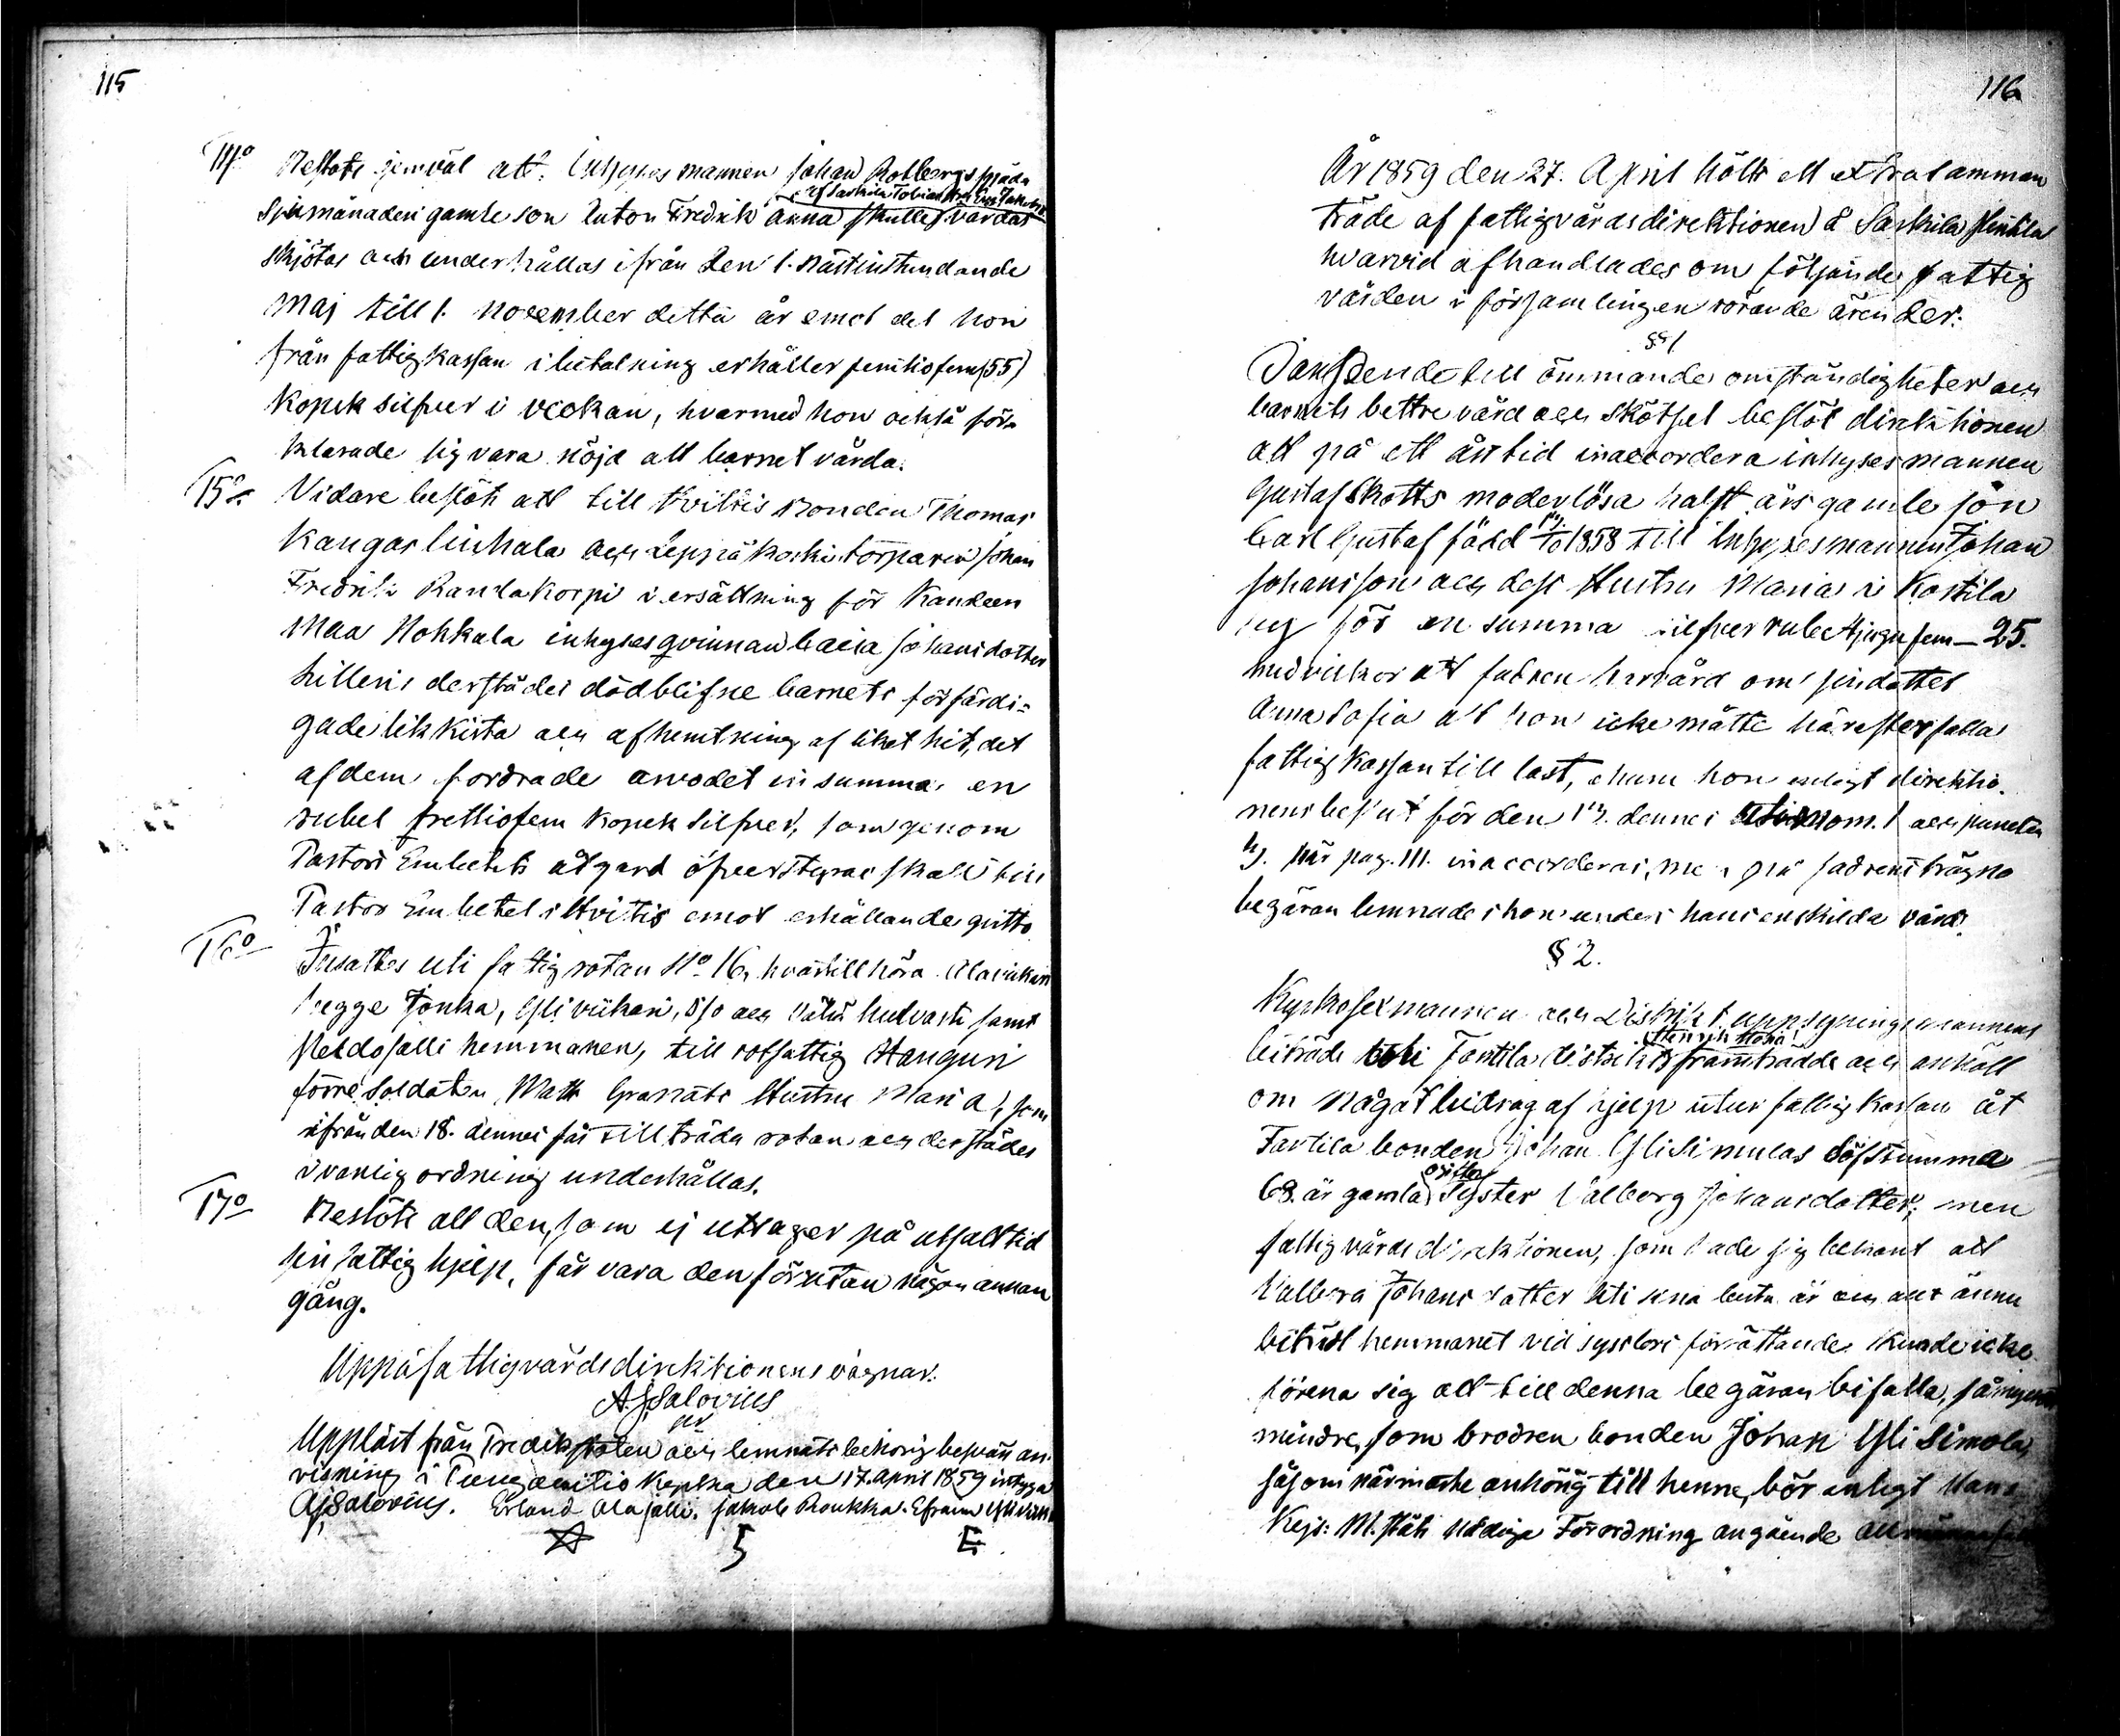 115
14o Beslöts jemväl att Inhyses mannen Johan Rotbergs späda
af Saskila Tobias
sju månaders gamle son Anton Fredrik Anna skulle vårdas
skjötas och underhållas ifrån den 1. nästinstundande
Maj till 1. November detta år emot det hon
från fattigkassan i betalning erhåller femtiofem (55)
kopek silfver i veckan, hvarmed hon också för-
klarade sig vara nöjd att barnet vårda.
15o Vidare beslöts att till Hvittis bonden Thomas
Kangas Liuhala och Leppäkoski torparen Johan
Fredrik Randakorpi i ersättning för Kandeen
Maa Nohkala inhyses qvinnan Caisa Johansdotter
Killenis derstädes dödblifne barnets förfärdi-
gade likkista och afhemtning af liket hit, det
af dem fordrade arvodet in summa en
rubel trettiofem kopek silfver, som genom
Pastors Embetets åtgärd öfverstyras skall till
Pastors Embetet i Hvittis emot erhållande qvitto
16o Insattes uti fattig rotan No 16, hvartill höra Alaviikari
begge Jonka, Yliviikari, och Vähä huhvasti samt
Peldosalli hemmanen, till rotfattig Hanguri
förre Soldaten Matts Granats Hustru Maria, som
ifrån den 18. dennes får tillträda rotan och derstädes
i vanlig ordning underhållas.
17o Beslöts att den, som ej uttager på utsatt tid
sin fattig hjelp, får vara den förutan någon annan
gång.
Uppå fattigvårdsdirektionens vägnar:
AJSalovius
Uppläst från Predikstolen och lemnats behörig besvärs an-
visning i Pungalaitio Kyrka den 17. April 1859 intyga
AJSalovius. Erland Alasalli. Jakob Roukka. Efraim
116
År 1859 den 27. April hölls ett extra samman
träde af fattigvårdsdirektionen å Saskila Penttila
hvarvid afhandlades om följande fattig
vården i församlingen rörande ärender:
§ 1
Danseende till ömmande omständigheter och
barnets bettre vård och skötsel beslöt direktionen
att på ett års tid inaccordera inhyses mannen
Gustaf Skotts moderlösa halft års gamle son
Carl Gustaf född 1858 till Inhysesmannen Johan
Johansson och dess Hustru Maria i Kostila
by för en summa silfver rubel tjugufem — 25.
med vilkor att fadren har vård om sin dotter
Anna Sofia att hon icke måtte härefter falla
fattigkassan till last, ehuru hon enligt direktio-
nens beslut för den 17. dennes mom. 1 och puncten
h). här pag. 111. inaccorderas, men på fadrens trägna
begäran lemnades hon under hans enskilda vård.
§ 2.
Kyrkosexmannen och Distrikt uppsyningsmannens
Henrik
biträde uti Tartila distrikts framträdde och anhöll
om något bidrag af hjelp utur fattig kassan åt
Tartila bonden Johan Ylisimulas döfstumma
ogifta
68. år gamla Syster Valborg Johansdotter; men
fattigvårdsdirektionen, som hade sig bekant att
Valborg Johansdotter uti sina bästa år och ännu
biträdt hemmanet vid sysslors förrättande, kunde icke
förena sig att till denna begäran bifalla, så mycket
mindre, som brodren bonden Johan Yli Simola,
såsom närmaste anhörig till henne, bör enligt Hans
Kejs: M. stäts Nådiga Förordning angående